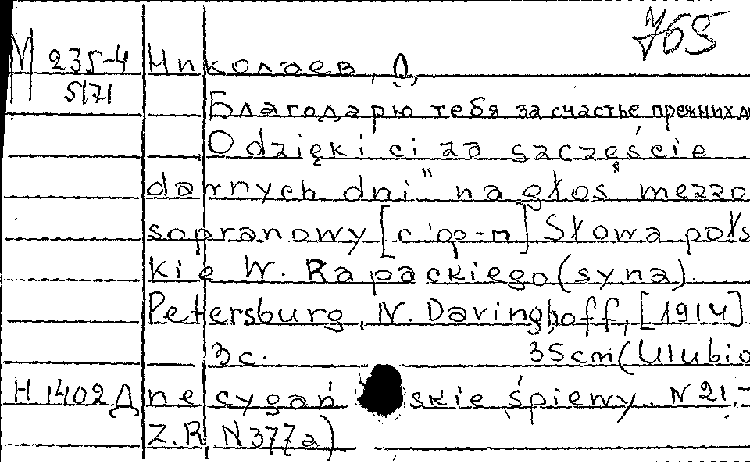 765
М 235-4 Николаев, О.
5171 Благодарю тебя за счастье прежних д
Odzięki ci za szczęście
dawnych dni" na głos mezzo
sopranowy [с ф-п] Słowa pols
kie W. Rapackiego (syna).
Petersburg, N. Davinghoff, [1914]
3с. 35cm (Ulubio
Н 1402Д ne cygań skie śpiewy. N 21.-
Z.R N377a)